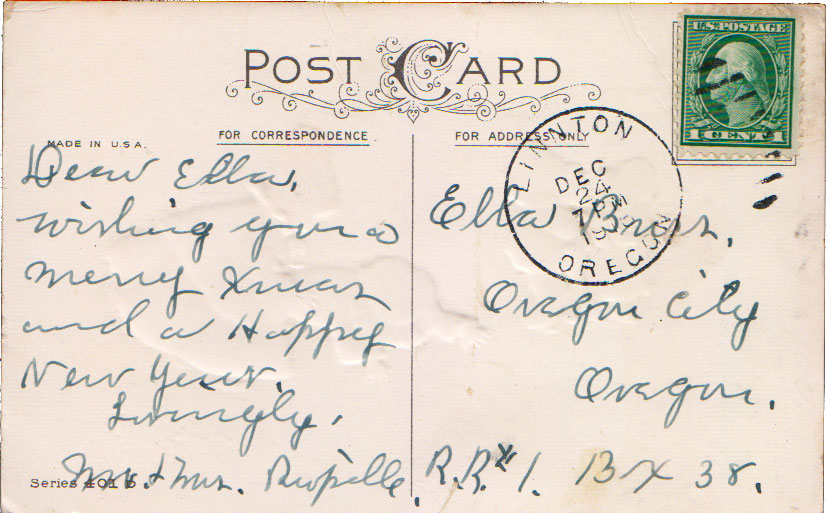 POST CARD
MADE IN U.S.A.
FOR CORRESPONDENCE
FOR ADDRESS ONLY
U.S. POSTAGE
1 CENT 1
LINNTON
DEC
24
7 PM
OREGON
Dear Ella,
wishing you a
merry Xmas
and a Happy
New Year.
Lovingly,
Mr. & Mrs.
Ella
Oregon City
Oregon.
R.R. # 1. Box 38.
Series 401 B